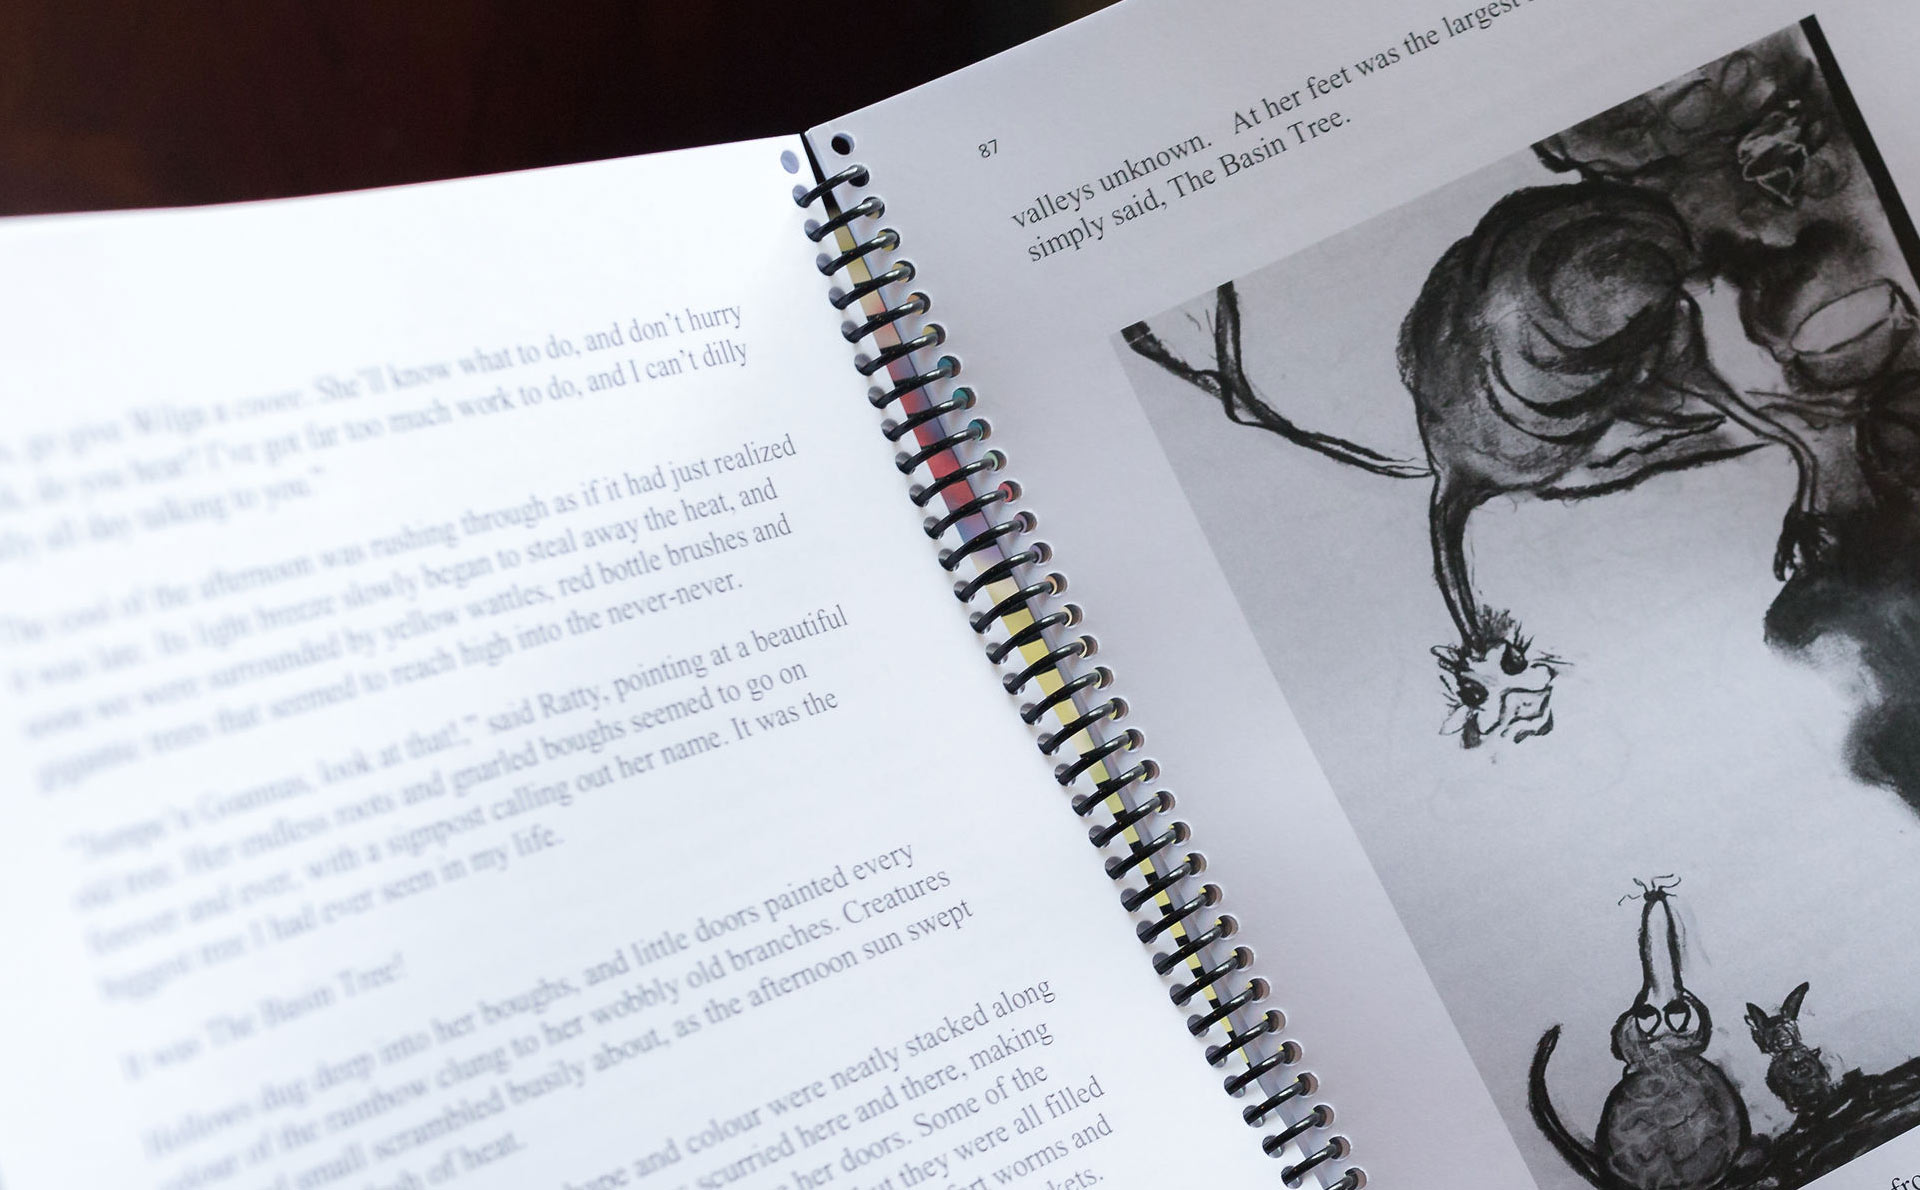 go give Wilga a cooee. She'll know what to do, and don't hurry
do you hear? I've got far too much work to do, and I can't dilly
all day talking to you."
The cool of the afternoon was rushing through as if it had just realized
it was late. Its light breeze slowly began to steal away the heat, and
soon we were surrounded by yellow wattles, red bottle brushes and
gigantic trees that seemed to reach high into the never-never.
look at that!," said Ratty, pointing at a beautiful
old tree. Her endless roots and gnarled boughs seemed to go on
forever and ever, with a signpost calling out her name. It was the
biggest tree I had ever seen in my life.
It was The Basin Tree!
Hollows dug deep into her boughs, and little doors painted every
colour of the rainbow clung to her wobbly old branches. Creatures
small scrambled busily about, as the afternoon sun swept
of heat.
and colour were neatly stacked along
scurried here and there, making
her doors. Some of the
they were all filled
worms and
87
valleys unknown. At her feet was the largest
simply said, The Basin Tree.